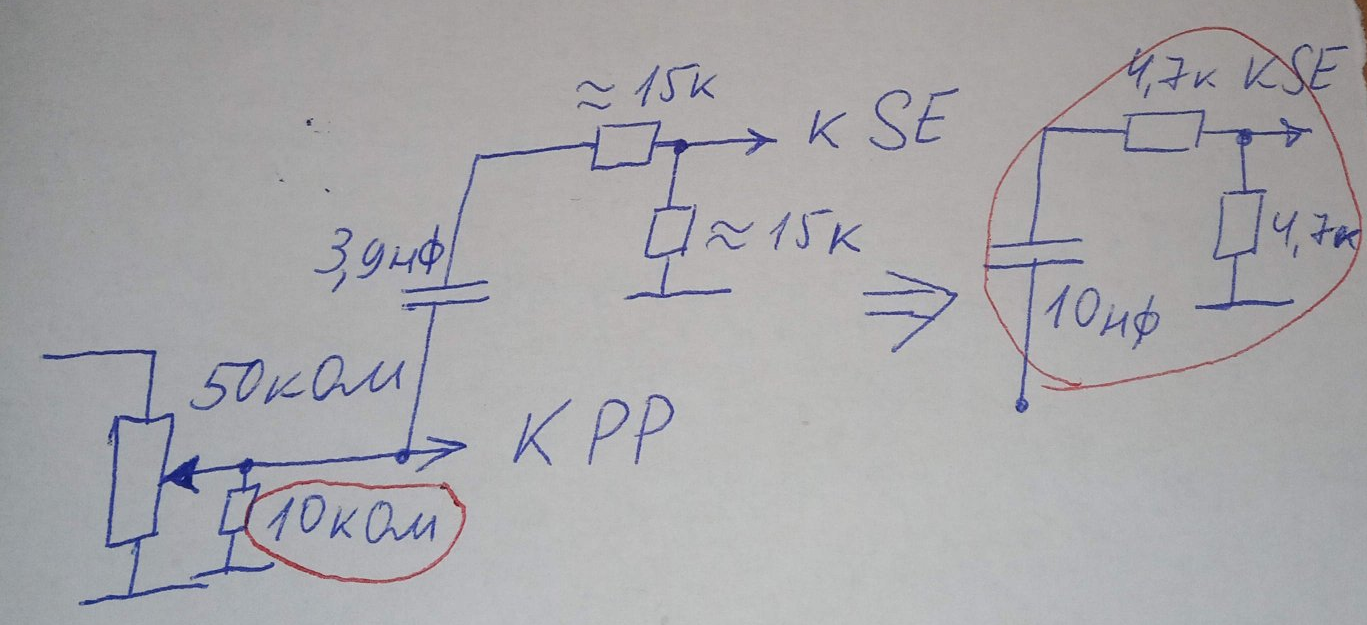 ≈ 15к
к SE
≈ 15к
3,9нф
50кОм
К РР
10кОм
4,7к
к SE
4,7к
10нф